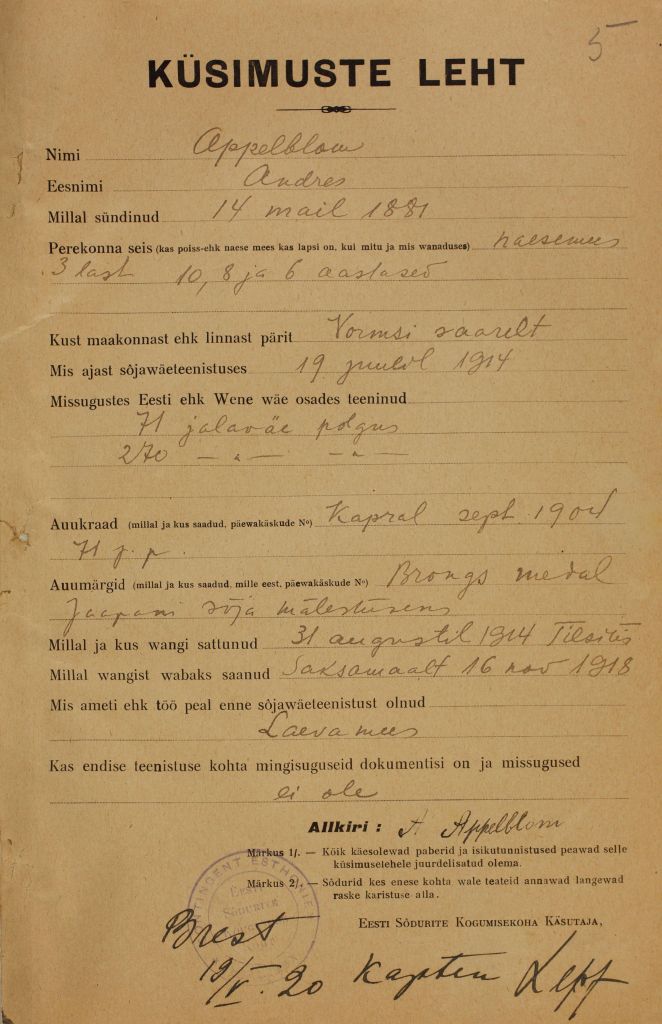 5
KÜSIMUSTE LEHT
Nimi Appelblom
Eesnimi Andres
Millal sündinud 14 mail 1881
Perekonna seis (kas poiss-ehk naese mees kas lapsi on, kui mitu ja mis wanaduses) naesemees
3 last 10, 8 ja 6 aastased
Kust maakonnast ehk linnast pärit Vormsi saarelt
Mis ajast sõjawäeteenistuses 19 juulil 1914
Missugustes Eesti ehk Wene wäe osades teeninud
71 jalaväe polgus
270 — „ — — „ —
Auukraad (millal ja kus saadud, päewakäskude No) Kapral sept. 1904
71 j. p.
Auumärgid (millal ja kus saadud, mille eest, päewakäskude No) Brongs medal
Jaapani sõja mälestusens
Millal ja kus wangi sattunud 31 augustil 1914 Tilsitis
Millal wangist wabaks saanud Saksamaalt 16 nov 1918
Mis ameti ehk töö peal enne sõjawäeteenistust olnud
Laevamees
Kas endise teenistuse kohta mingisuguseid dokumentisi on ja missugused
ei ole
Allkiri: A Appelblom
Märkus 1/. — Kõik käesolewad paberid ja isikutunnistused peawad selle
küsimuselehele juurdelisatud olema.
Märkus 2/. — Sõdurid kes enese kohta wale teateid annawad langewad
raske karistuse alla.
CONTINGENT ESTHONIEN
EESTI
SÕDURITE
EESTI SÕDURITE KOGUMISEKOHA KÄSUTAJA,
Brest
19/V. 20 Kapten Lepp